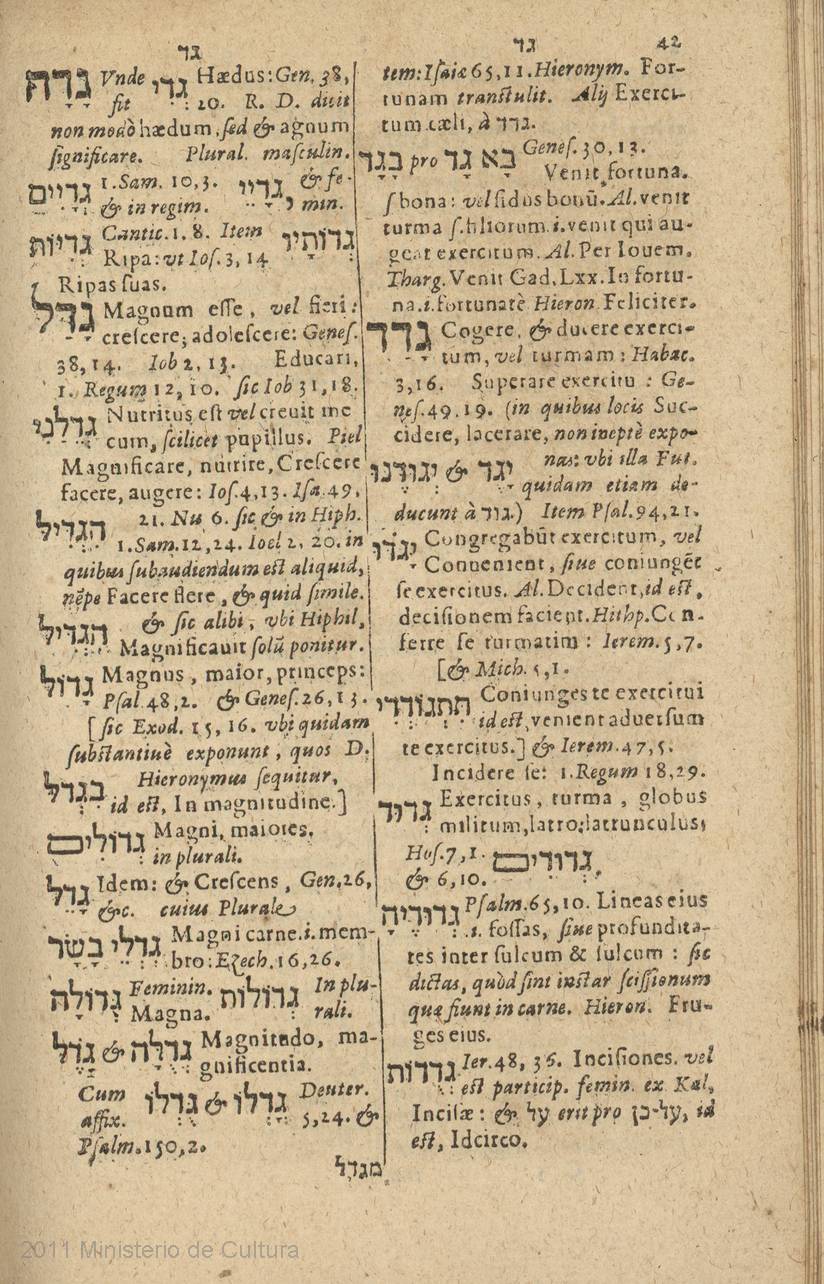 גד
גד 42
גדה Vnde גדי Hædus: Gen. 38,
fit 20. R. D. dicit
non modò hædum, sed & agnum
significare. Plural. masculin.
גדיים 1. Sam. 10, 3. גדיי & fe-
& in regim. min.
גדיות Cantic. 1. 8. Item גדותיו
Ripa: vt Ios. 3, 14
Ripas suas.
גדל Magnum esse, vel fieri:
crescere; adolescere: Genes.
38, 14. Iob 2, 13. Educari,
1. Regum 12, 10. sic Iob 31, 18.
גדלני Nutritus est vel creuit me
cum, scilicet pupillus. Piel
Magnificare, nutrire, Crescere
facere, augere: Ios. 4, 13. Isa. 49,
הגדיל 21. Nu 6. sic & in Hiph.
1. Sam. 12, 24. Ioel 2, 20. in
quibus subaudiendum est aliquid,
nẽpe Facere flere, & quid simile.
הגדיל & sic alibi, vbi Hiphil,
Magnificauit solũ ponitur.
גדול Magnus, maior, princeps:
Psal. 48, 2. & Genes. 26, 13.
[sic Exod. 15, 16. vbi quidam
substantiuè exponunt, quos D.
בגדל Hieronymus sequitur,
id est, In magnitudine.]
גדולים Magni, maiores,
in plurali.
גדל Idem: & Crescens, Gen. 26,
&c. cuius Plurale
גדלי בשר Magni carne. i. mem-
bro: Ezech. 16, 26.
גדולה Feminin. גדולות In plu-
Magna. rali.
גדלה & גדל Magnitudo, ma-
gnificentia.
Cum גדלו & גדלו Deuter.
affix. 5, 24. &
Psalm. 150, 2.
מגדל
tem: Isaiæ 65, 11. Hieronym. For-
tunam transtulit. Alij Exerci-
tum cæli, à גדד.
בגד pro בא גד Genes. 30, 13.
Venit fortuna.
s bona: vel sidus bonũ. Al. venit
turma s. filiorum. i. venit qui au-
geat exercitum. Al. Per Iouem.
Tharg. Venit Gad. Lxx. In fortu-
na. i. fortunatè Hieron. Feliciter.
גדד Cogere, & ducere exerci-
tum, vel turmam: Habac.
3, 16. Superare exercitu: Ge-
nes. 49. 19. (in quibus locis Suc-
cidere, lacerare, non ineptè expo-
יגד & יגודנו nas: vbi illa Fut.
quidam etiam de-
ducunt à גוד.) Item Psal. 94, 21.
יגדו Congregabũt exercitum, vel
Conuenient, siue coniungẽt
se exercitus. Al. Decident, id est,
decisionem facient. Hithp. Con-
ferre se turmatim: Ierem. 5, 7.
[& Mich. 5, 1.
תתגודדי Coniunges te exercitui
id est, venient aduersum
te exercitus.] & Ierem. 47, 5.
Incidere se: 1. Regum 18, 29.
גדוד Exercitus, turma, globus
militum, latro; latrunculus;
Hos. 7, 1. גדודים
& 6, 10.
גדודיה Psalm. 65, 10. Lineas eius
.i. fossas, siue profundita-
tes inter sulcum & sulcum: sic
dictas, quòd sint instar scissionum
quæ fiunt in carne. Hieron. Fru-
ges eius.
גדדות Ier. 48, 36. Incisiones. vel
est particip. femin. ex Kal,
Incisæ: & על erit pro על־כן, id
est, Idcirco.
2011 Ministerio de Cultura